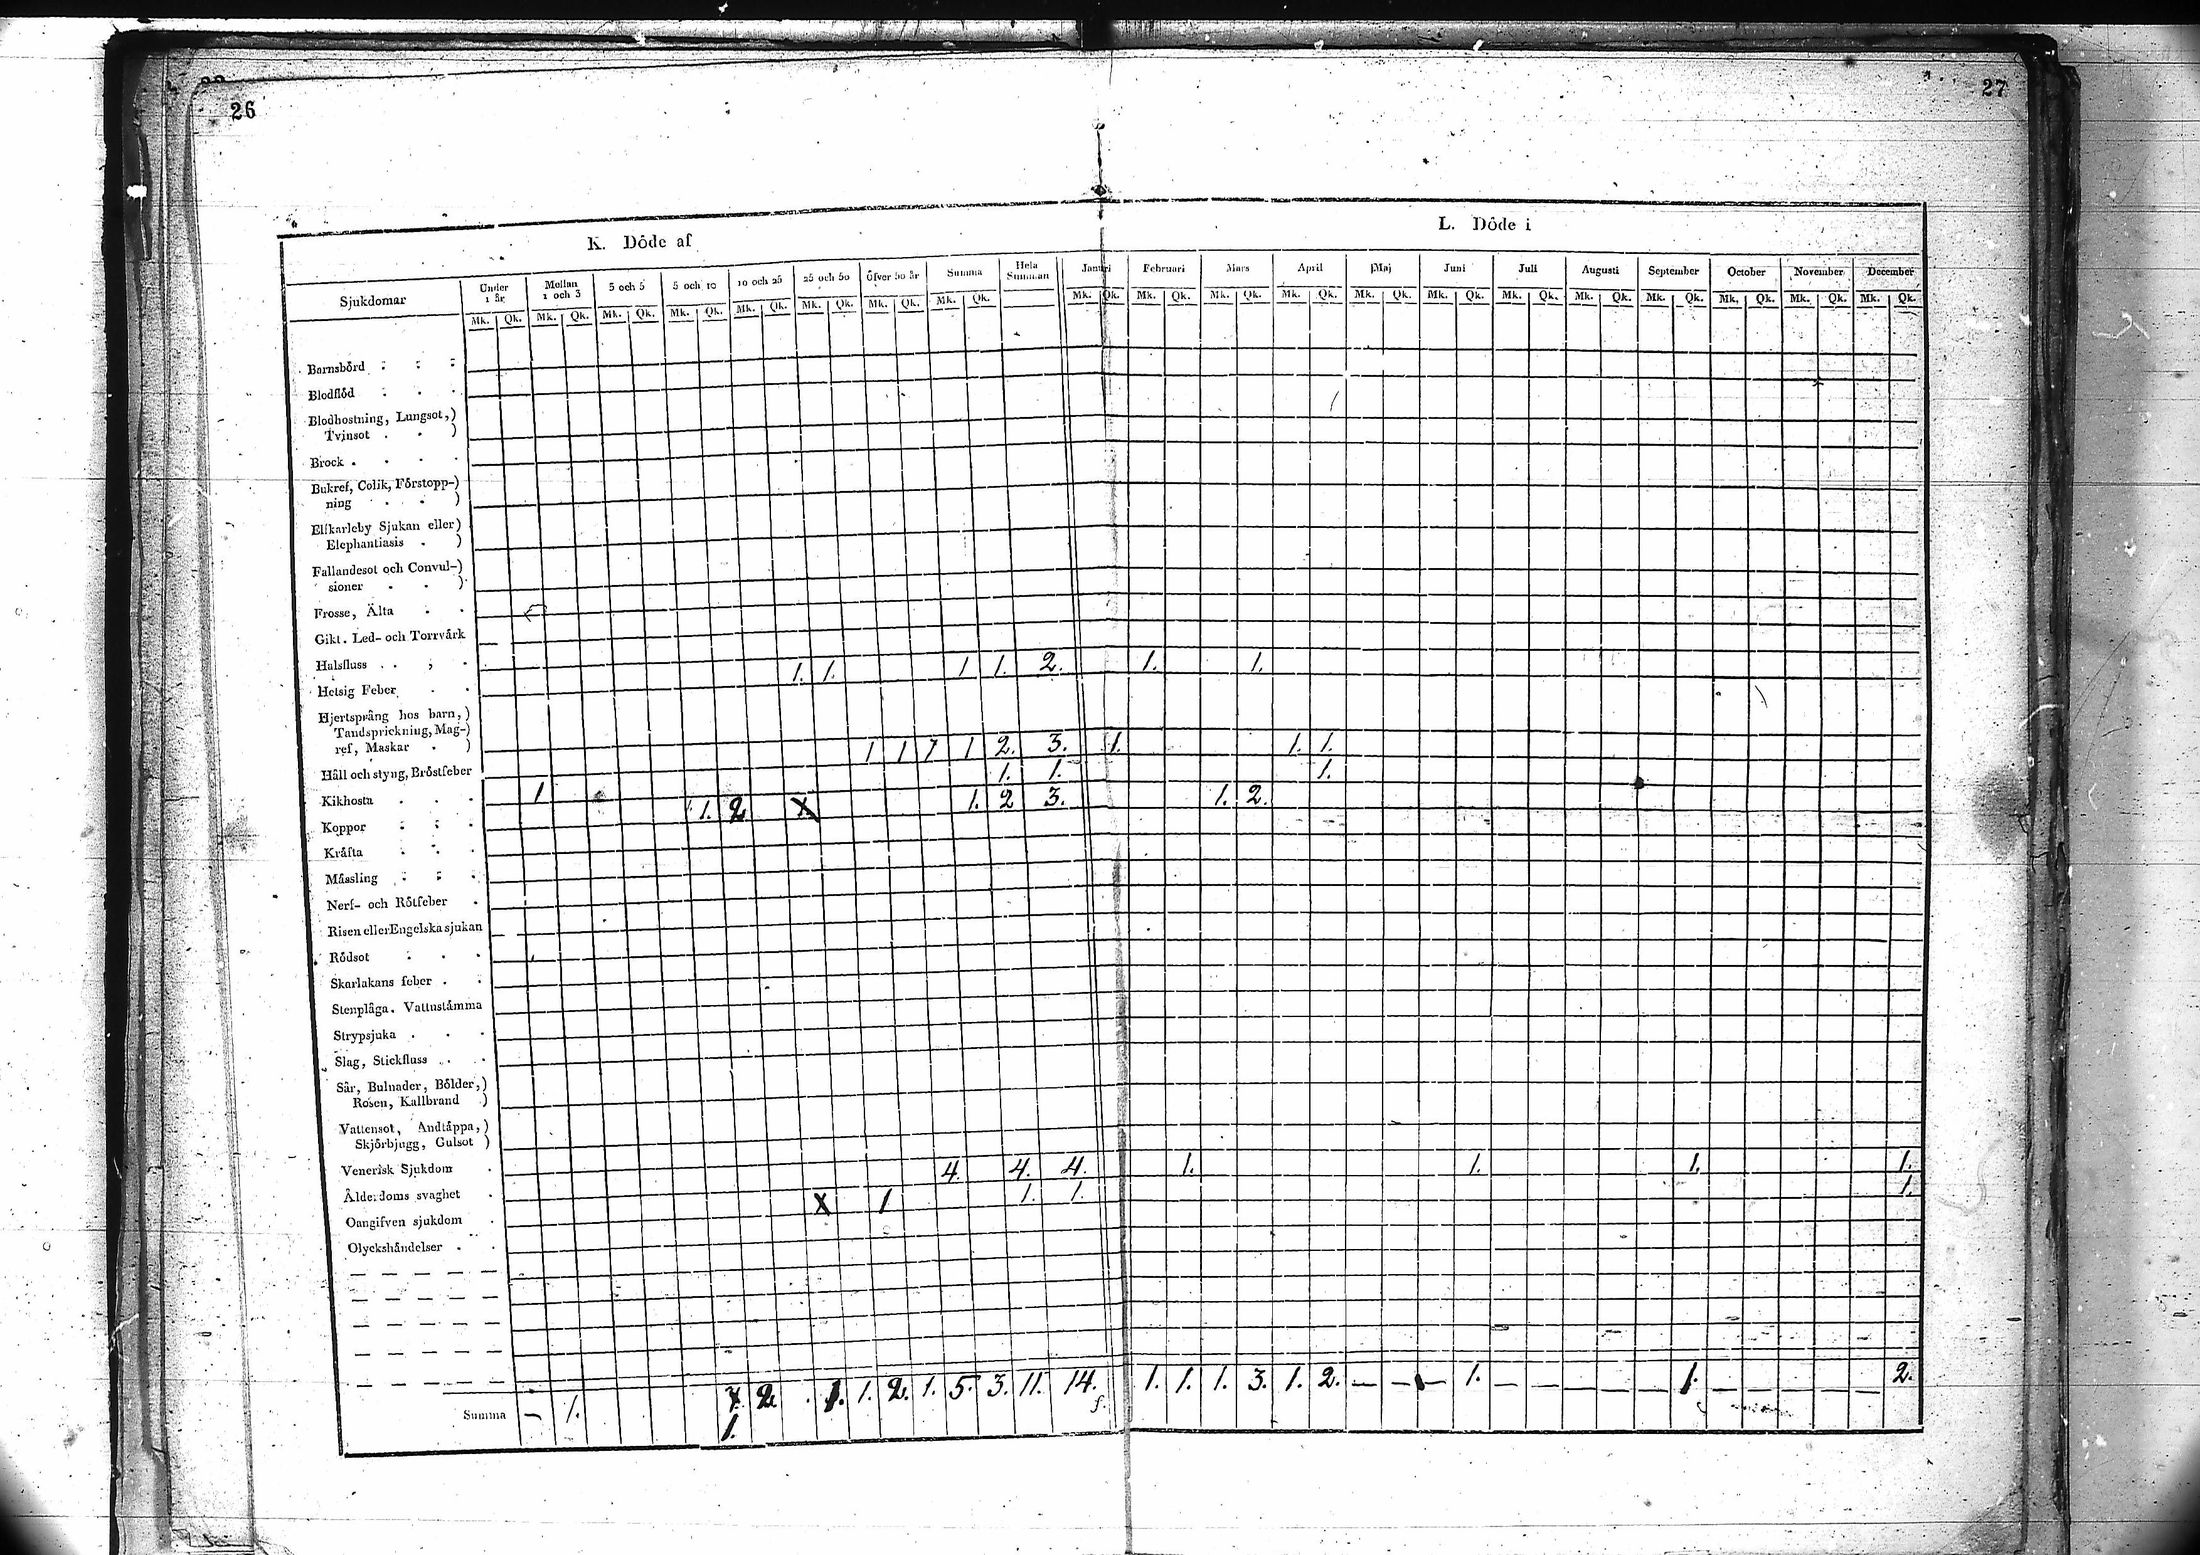 26
27
K. Döde af
L. Döde i
Sjukdomar
Under 1 år
Mellan 1 och 3
3 och 5
5 och 10
10 och 25
25 och 50
Öfver 50 år
Summa
Hela Summan
Januri
Februari
Mars
April
Maj
Juni
Juli
Augusti
September
October
November
December
Mk. Qk. Mk. Qk. Mk. Qk. Mk. Qk. Mk. Qk. Mk. Qk. Mk. Qk. Mk. Qk. Mk. Qk. Mk. Qk. Mk. Qk. Mk. Qk. Mk. Qk. Mk. Qk. Mk. Qk. Mk. Qk. Mk. Qk. Mk. Qk. Mk. Qk. Mk. Qk.
Barnsbörd
Blodflöd
Blodhostning, Lungsot,)
Tvinsot )
Brock
Bukref, Colik, Förstopp-)
ning )
Elfkarleby Sjukan eller)
Elephantiasis )
Fallandesot och Convul-)
sioner )
Frosse, Älta
Gikt. Led- och Torrvärk
Halsfluss
Hetsig Feber 1. 1. 1 1. 2. 1. 1.
Hjertsprång hos barn,)
Tandsprickning, Mag-)
ref, Maskar )
Håll och styng, Bröstfeber 1 1 1 1 2. 3. 1. 1. 1.
Kikhosta 1 1. 1. 1.
Koppor 1. 2 x 1. 2 3. 1. 2.
Kräfta
Mässling
Nerf- och Rötfeber
Risen eller Engelska sjukan
Rödsot
Skarlakans feber
Stenplåga. Vattustämma
Strypsjuka
Slag, Stickfluss
Sår, Bulnader, Bölder,)
Rosen, Kallbrand )
Vattensot, Andtäppa,)
Skjörbjugg, Gulsot )
Venerisk Sjukdom
Ålderdoms svaghet 4. 4. 4. 1. 1. 1. 1.
Oangifven sjukdom x 1 1. 1. 1.
Olyckshändelser
Summa — 1. 2. 1. 1. 2. 1. 5. 3. 11. 14. 1. 1. 1. 3. 1. 2. — — 1. — — — — 1. — — — — — 2.
1.